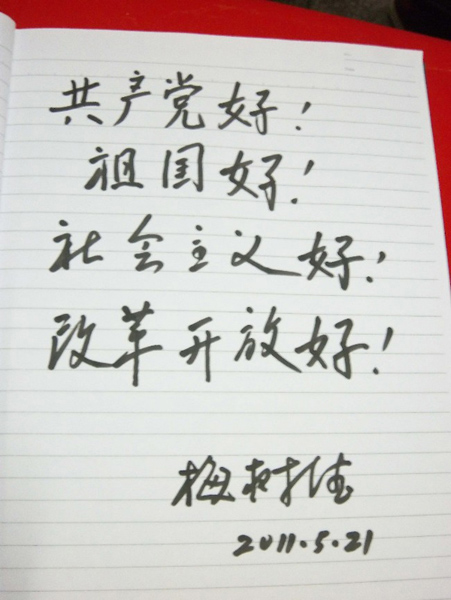 共产党好!
祖国好!
社会主义好!
改革开放好!
梅树佳
2011.5.21